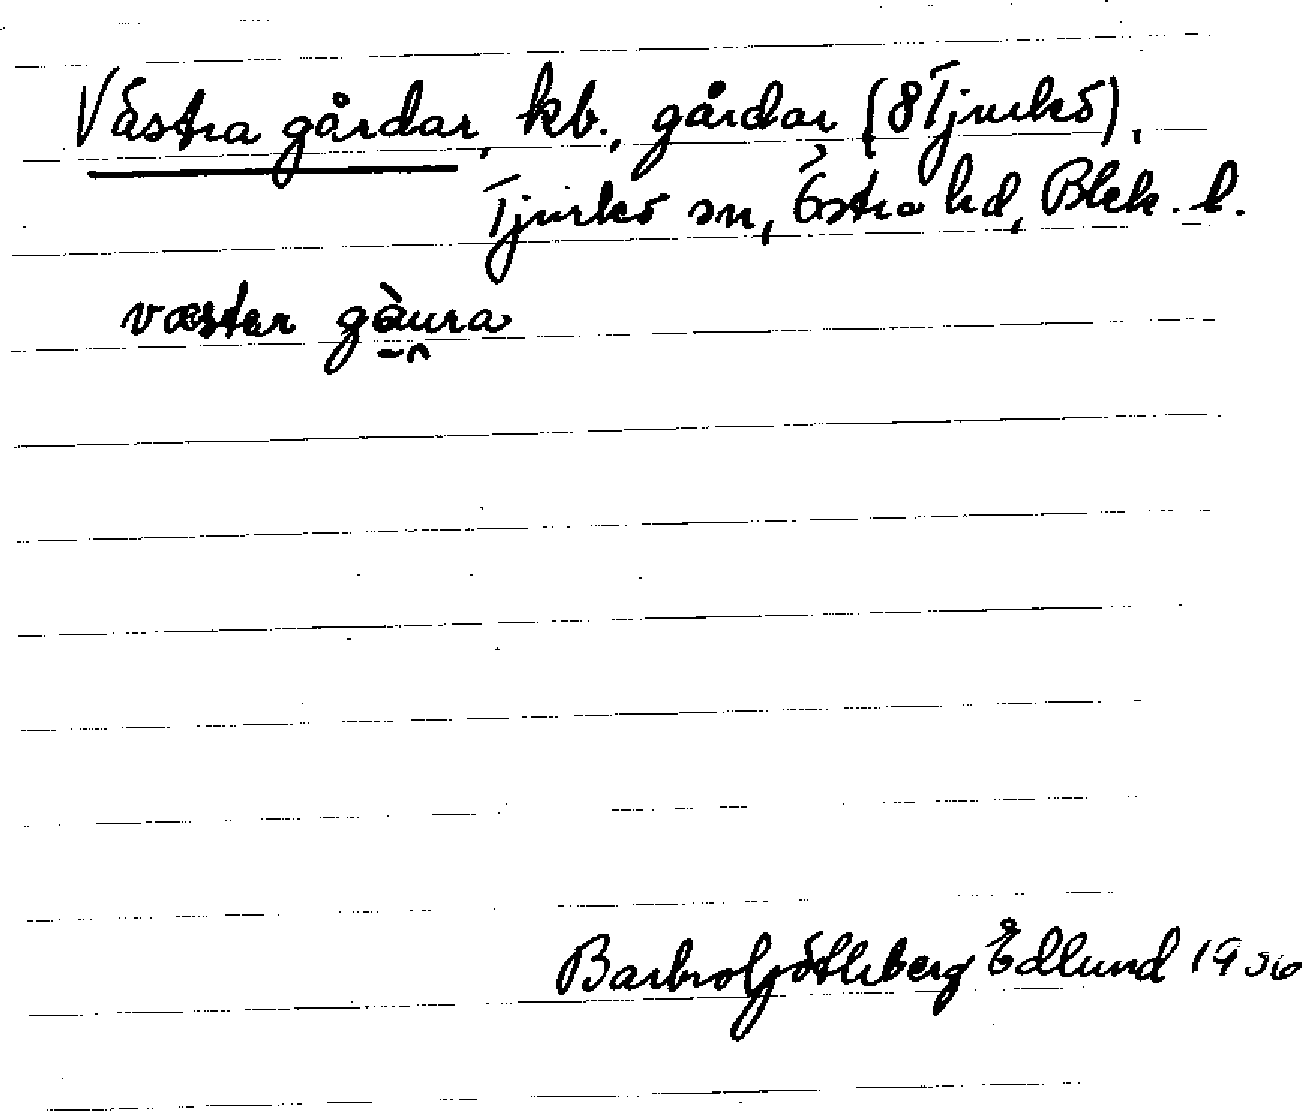 Västra gårdar, kb., gårdar (8 Tjurkö),
Tjurkö sn, Östra hd, Blek. l.
væster gàura
Barbro Edlund 1956